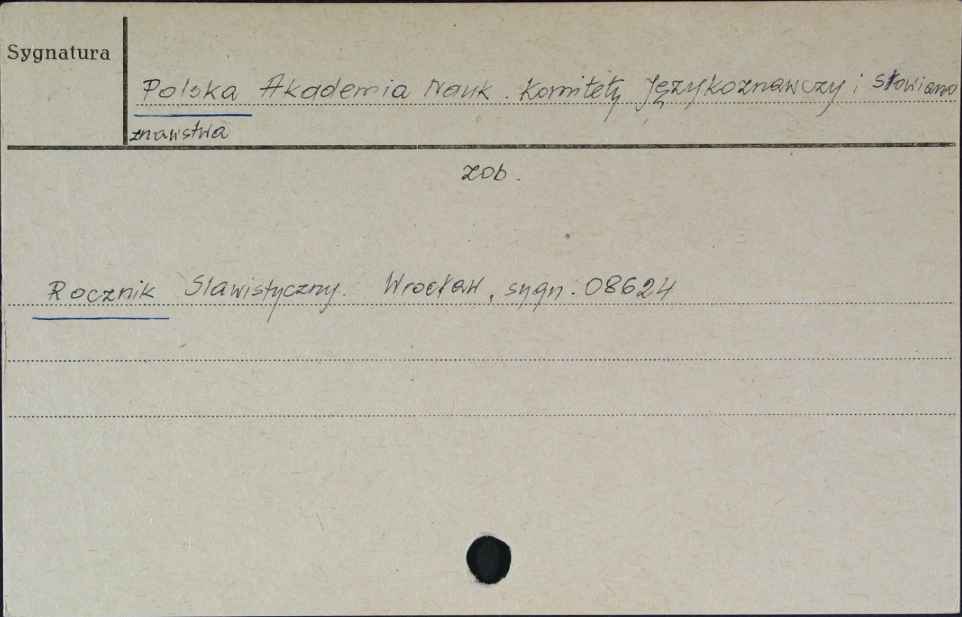 Sygnatura
Polska Akademia Nauk. Komitety Językoznawczy i Słowiano
znawstwa
zob.
Rocznik Slawistyczny. Wrocław, sygn: 08624